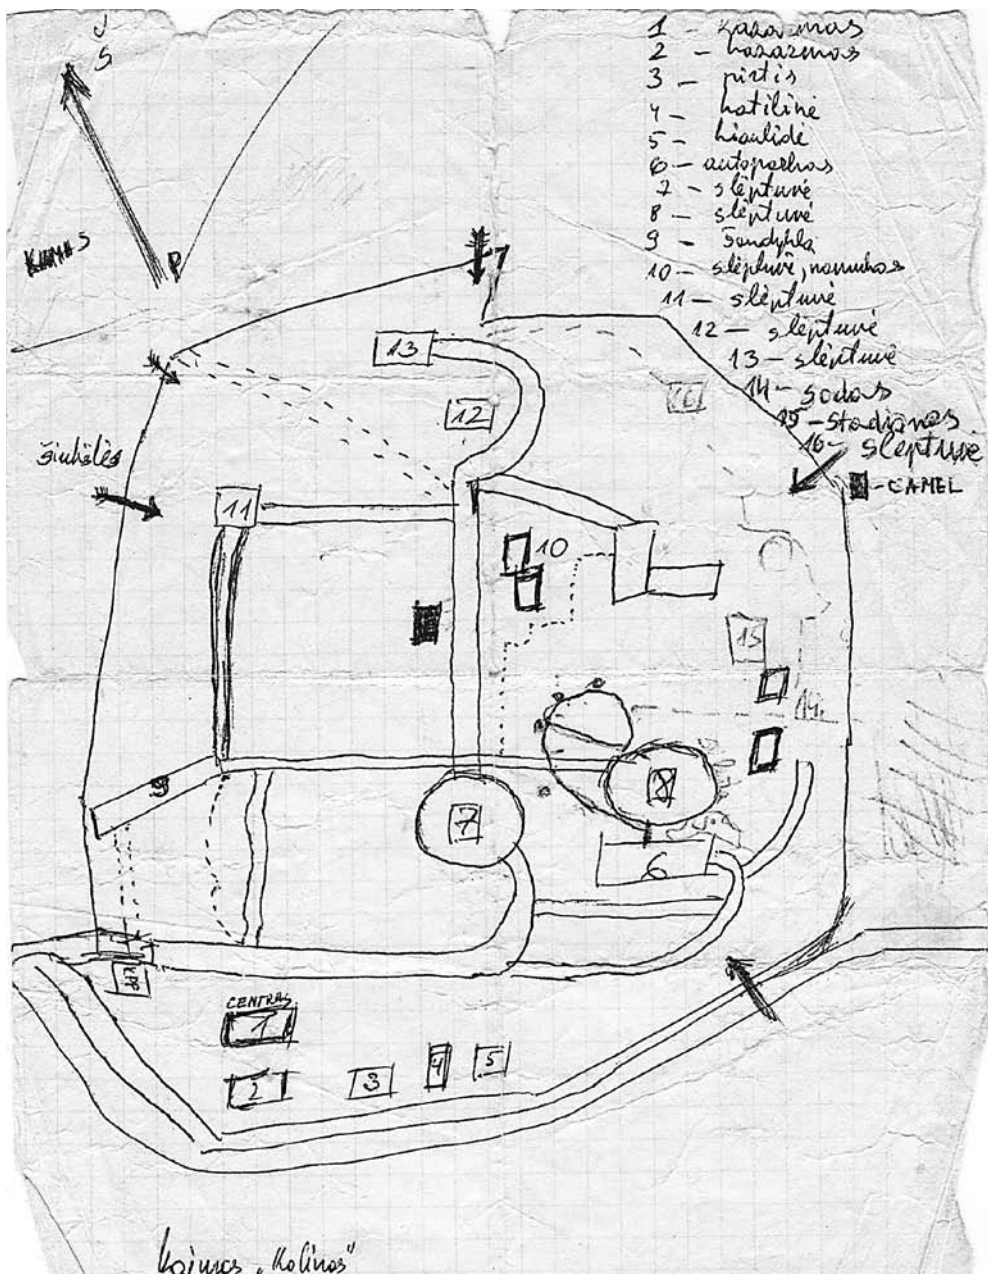 1 - kazarmos
2 - kazarmos
3 - pirtis
4 - katilinė
5 - kiaulidė
6 - autoparkas
7 - slėptuvė
8 - slėptuvė
9 - Šaudykla
10 - slėptuvė, namukas
11 - slėptuvė
12 - slėptuvė
13 - slėptuvė
14 - sodas
15 - stadijonas
16 - slėptuvė
- CAMEL
S
P
13
12
16
11
10
15
14
9
7
8
6
CENTRAS
1
2
3
4
5
kaimas „Kalinas"